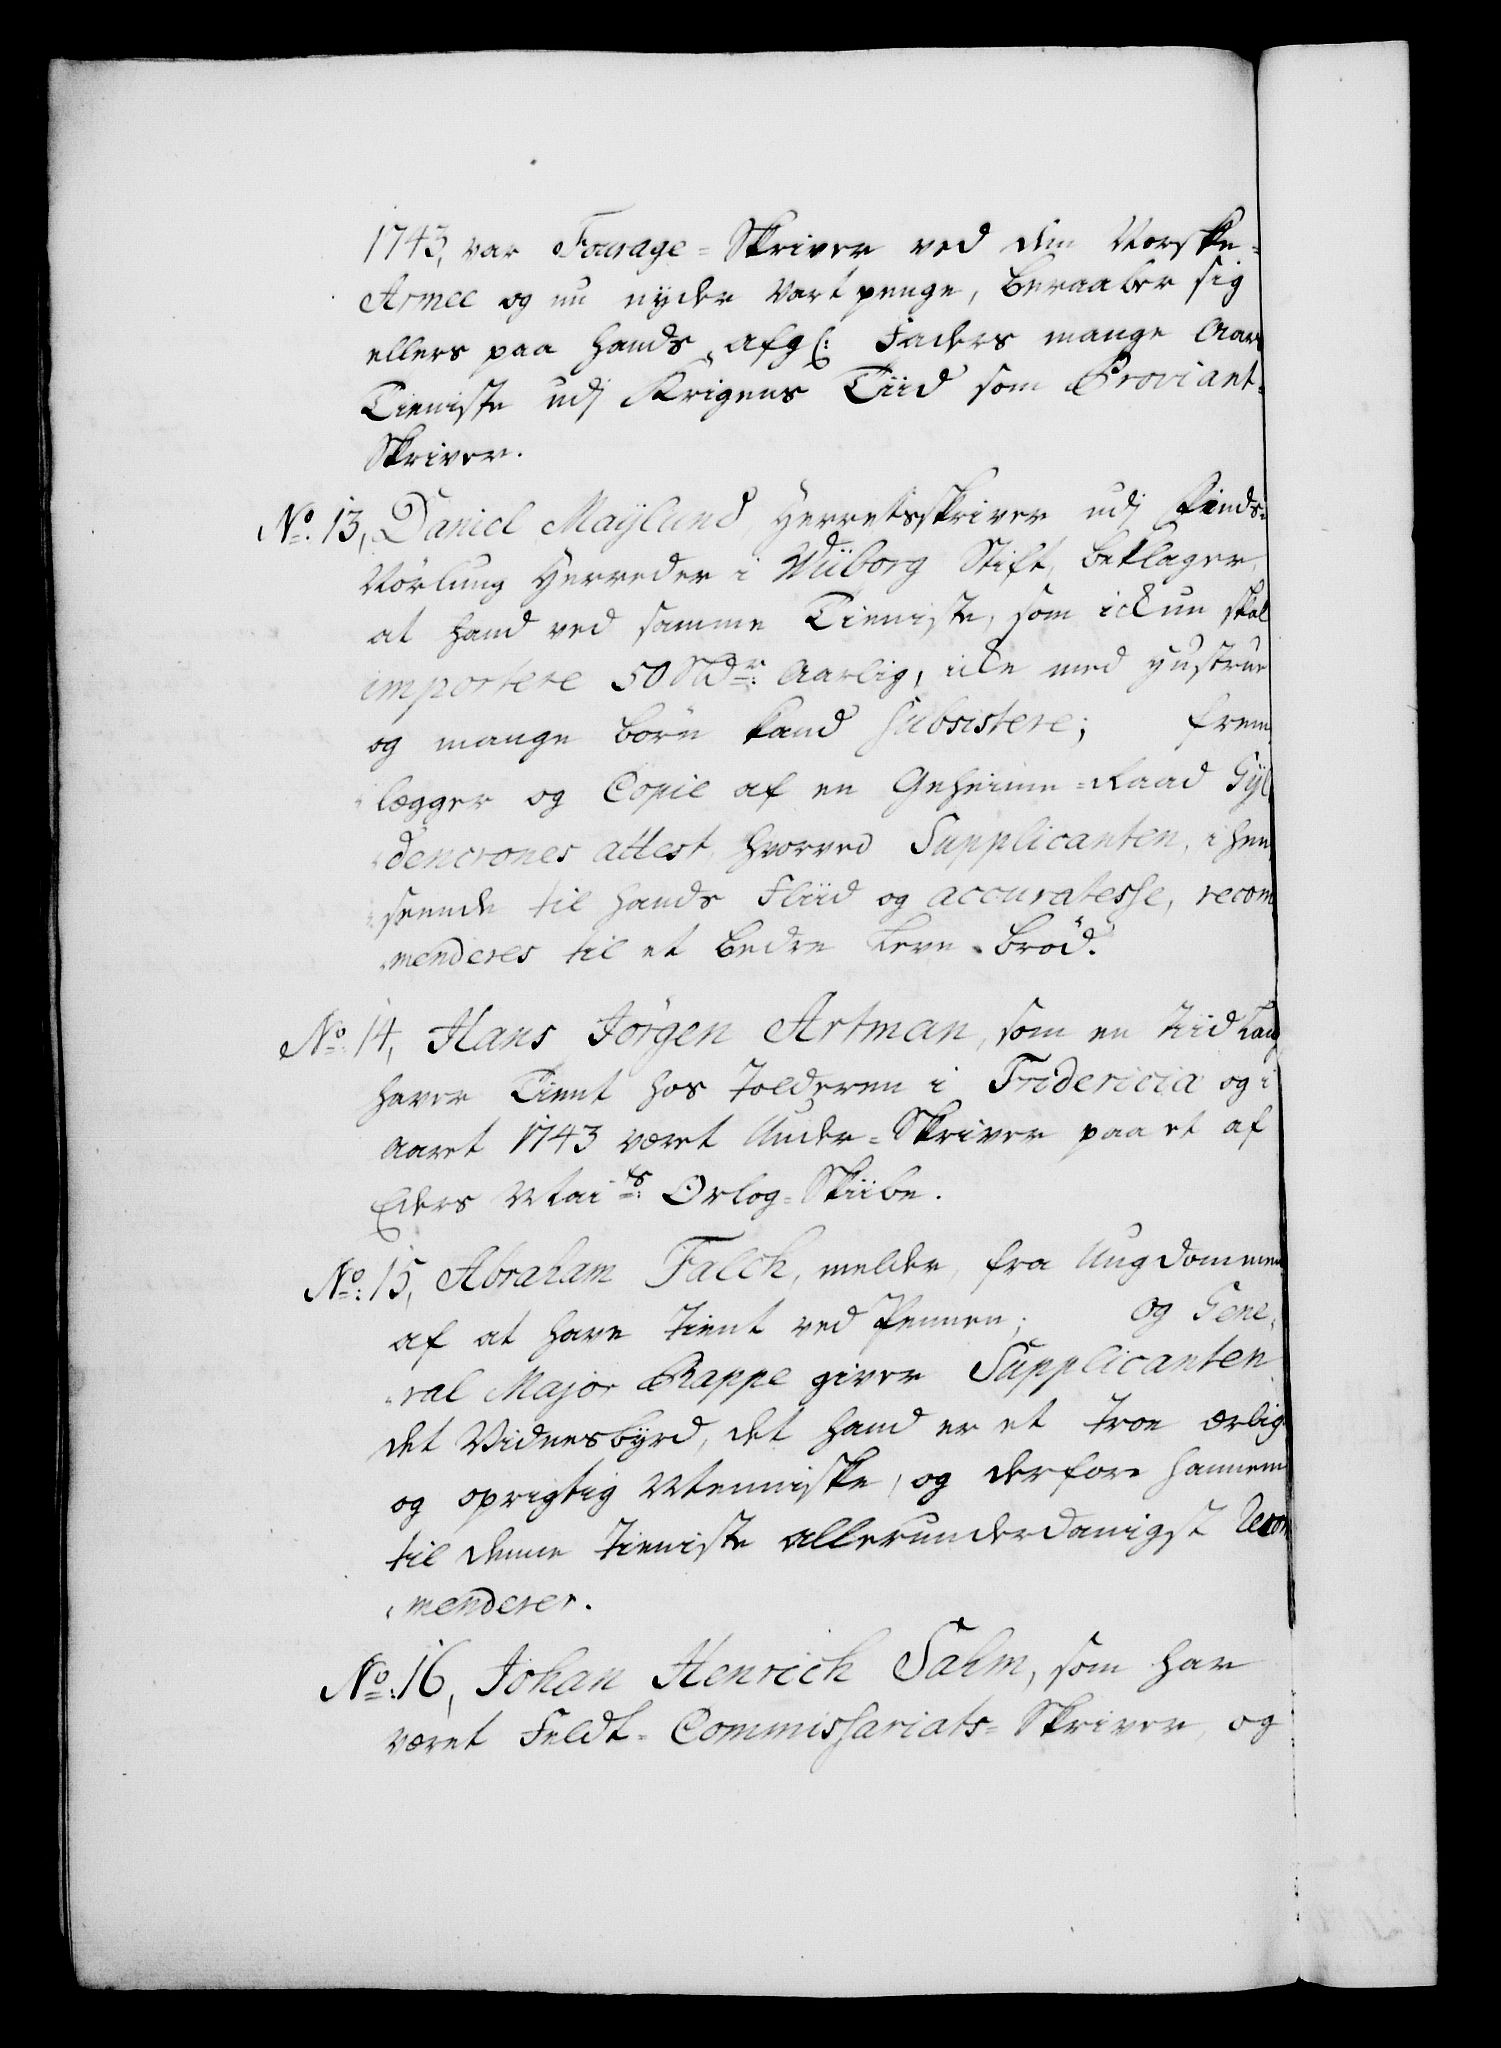 1743, var Fourage-Skriver ved den Norske-
Armee og nu nyder Vartpenge, beraaber sig
ellers paa hands afg: Faders mange Aars
Tieniste udj Krigens Tiid som Proviant-
Skriver.
No. 13, Daniel Maÿlund Herretsskriver udj Rinds-
Nörlung Herreder i Wiiborg Stift, beklager,
at hand ved samme Tieniste, som ickun skal
importere 50 Rdr: Aarlig, icke med Hustrue
og mange börn kand subsistere; frem
lægger og Copie af en Geheime-Raad Gÿl
dencrones attest, hvorved Supplicanten, i hen
seende til hands Fliid og accuratesse, recom
menderes til et bedre Leve-bröd.
No. 14, Hans Jörgen Artman, som en Tiid lang
haver Tient hos Tolderen i Fridericia og i
Aaret 1743 været Under-Skriver paa et af
Eders Maits: Orlog-Skiibe.
No: 15, Abraham Falck, melder, fra Ungdommen
af at have Tient ved Pennen; og Gene,
ral Major Rappe giver Supplicanten
det Vidnesbÿrd, det hand er et Troe ærlig
og oprigtig Menniske, og derfore hannem
til denne Tieniste allerunderdanigst Recom
menderer.
No: 16, Johan Henrich Sahm, som har
været Feldt-Commissariats-Skriver, og